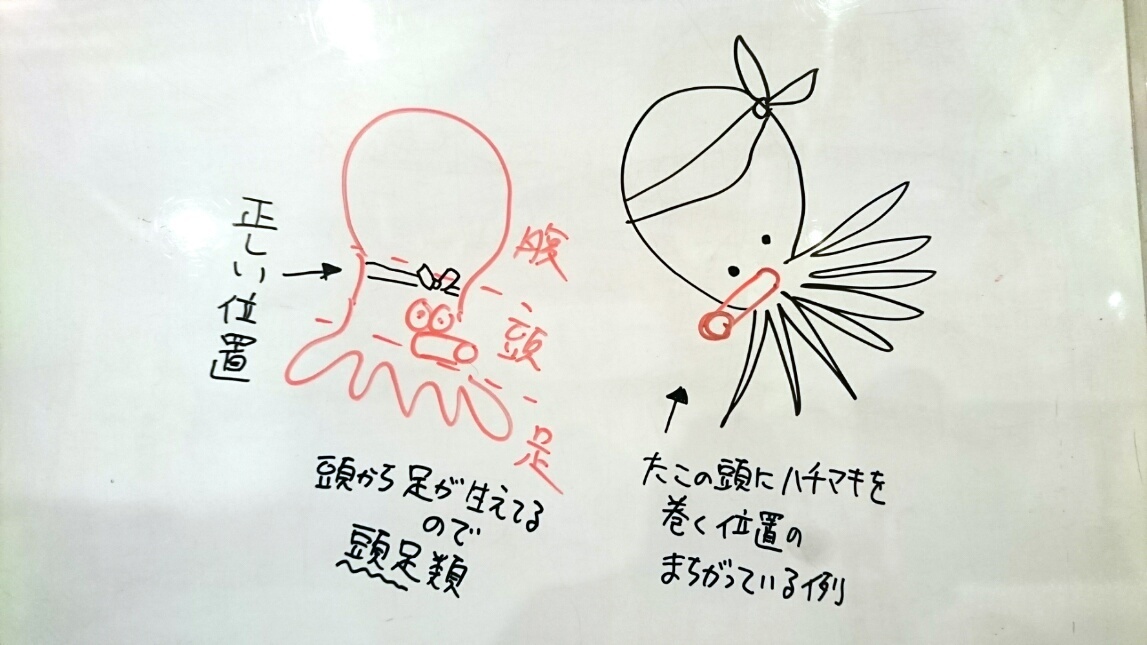 正しい位置
腹
頭
足
頭から足が生えてる
ので
頭足類
たこの頭にハチマキを
巻く位置の
まちがっている例